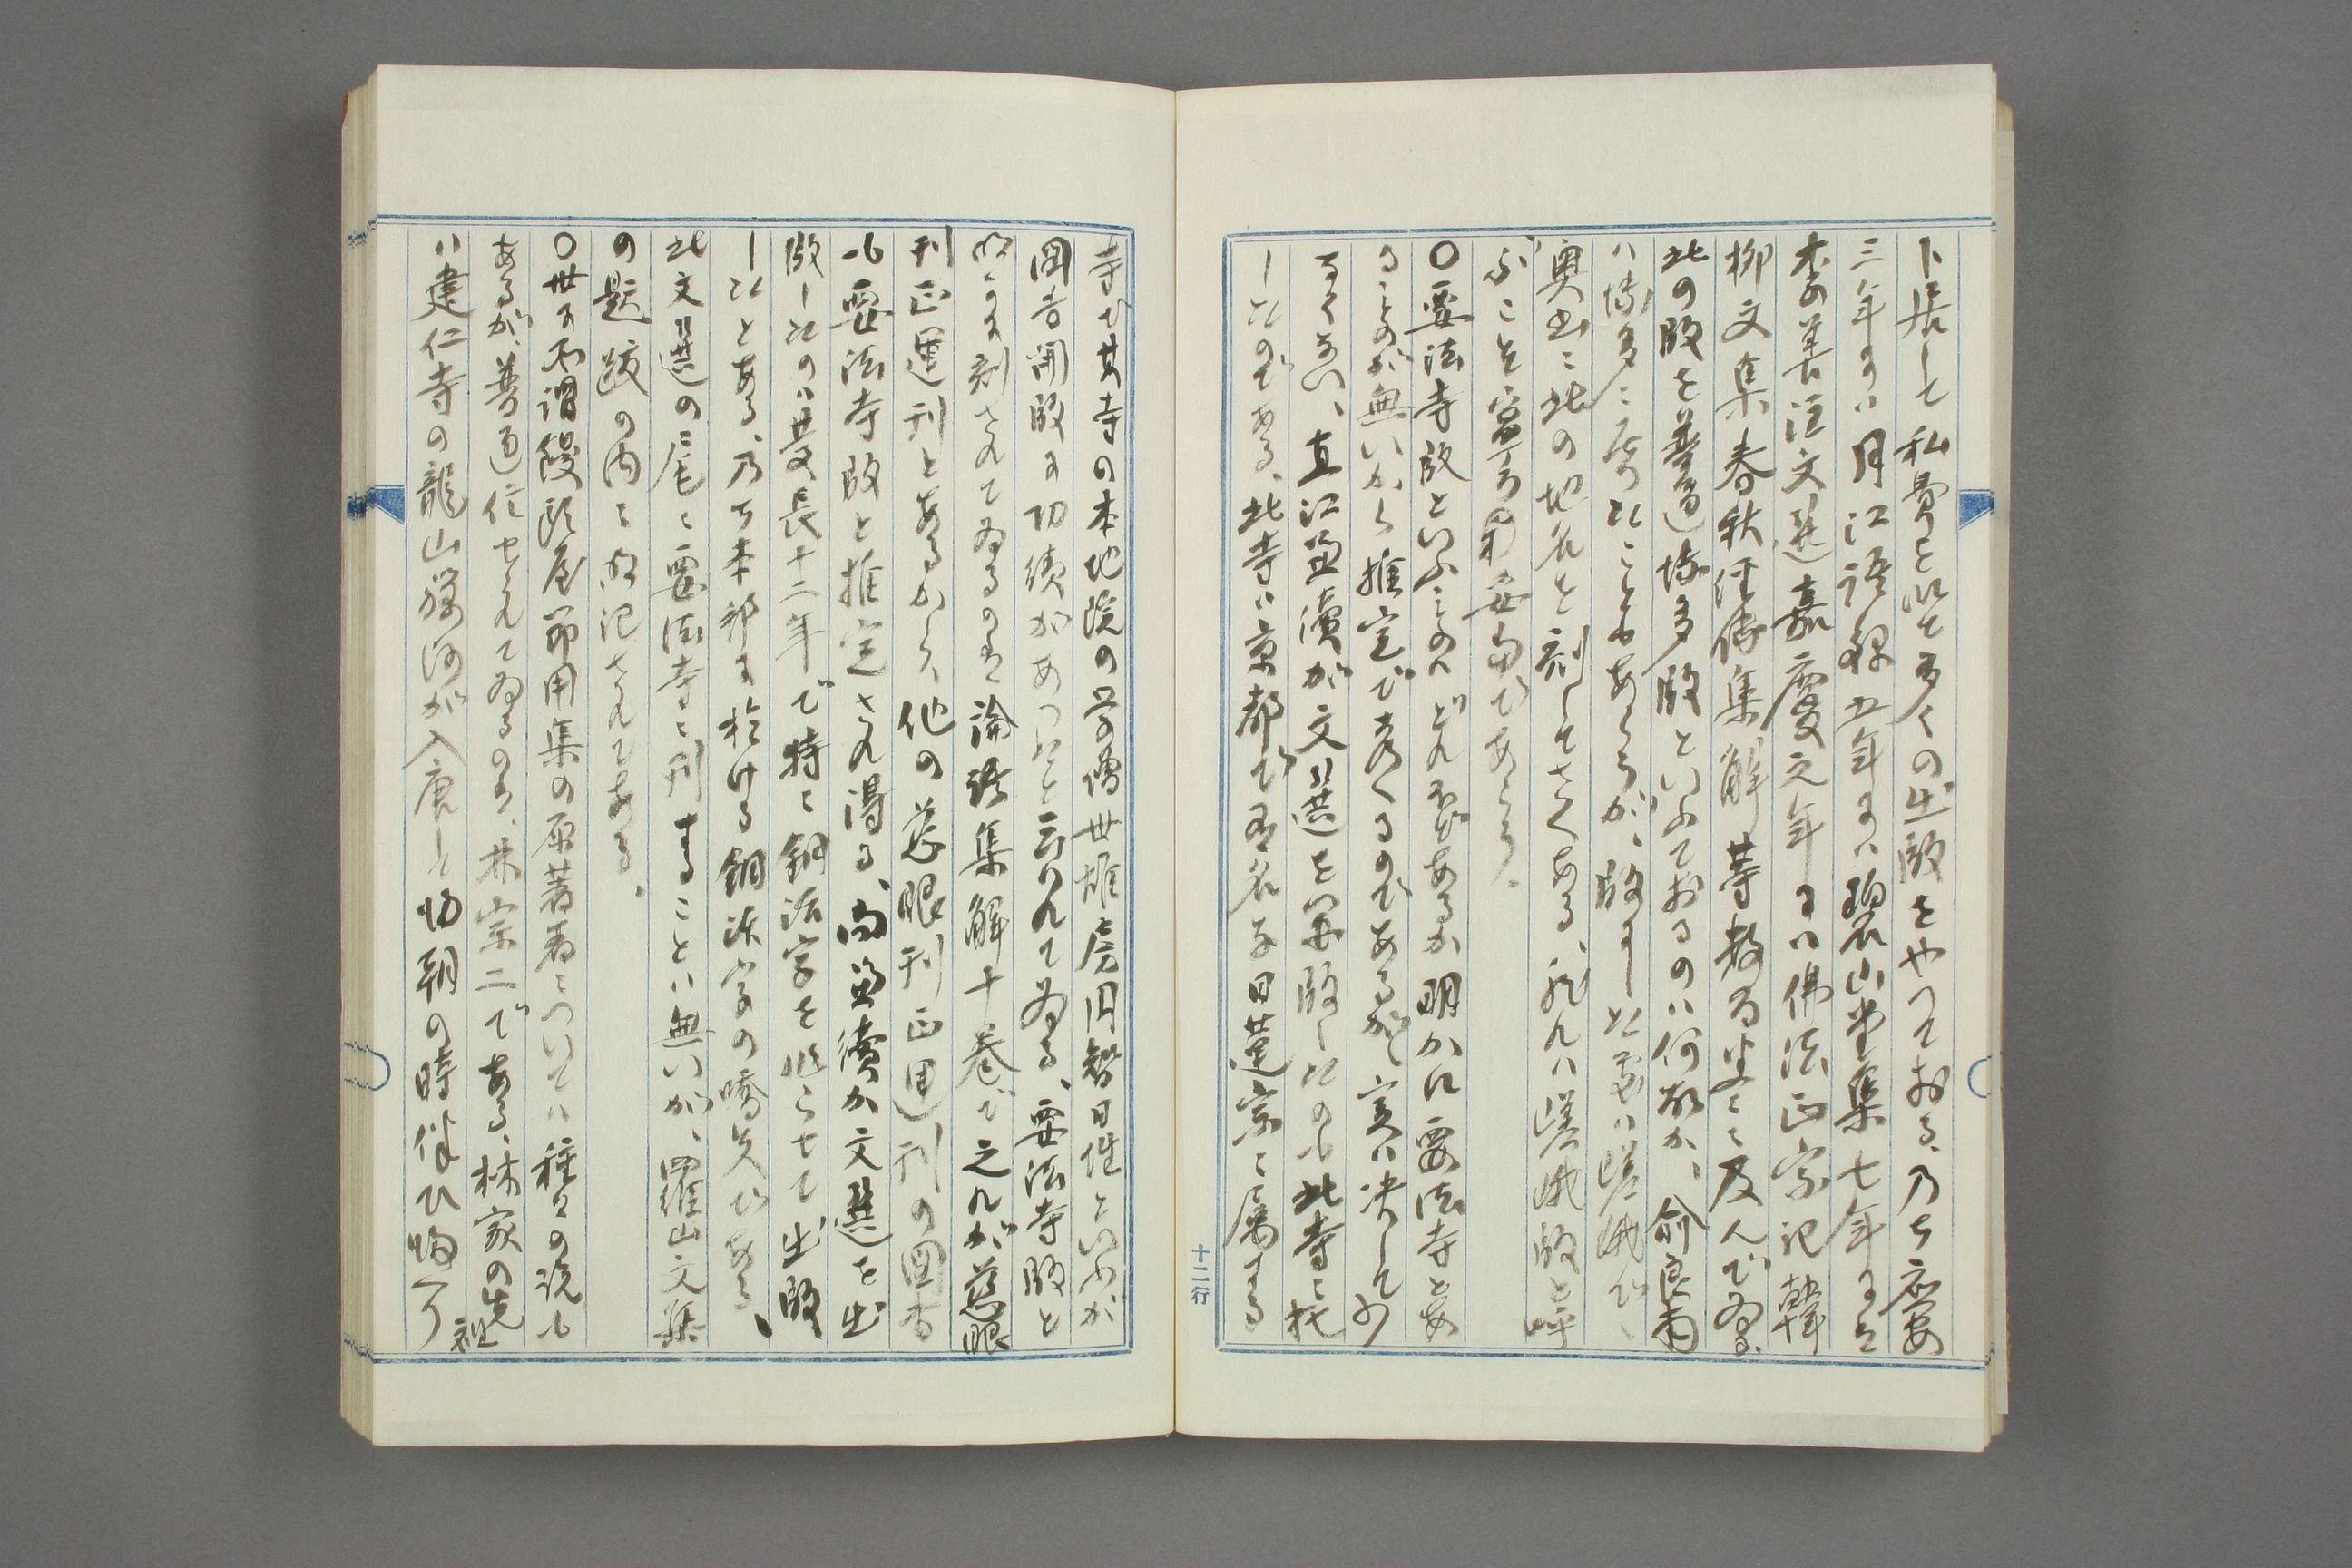 卜居して私費を以て多くの出版をやつておる、乃ち応安
三年には月江語録五年には碧山堂集七年には
李善注文選嘉慶元年には佛法正宗記韓
柳文集春秋経傳集解等数百巻に及んでゐる、
此の版を普通博多版といふておるのは何故か、俞良甫
は博多に居つたこともあらうが、版にした処は嵯峨で、
奥書に此の地名を刻してさへある、
ぶことを
〇要法寺版といふものはどれ丈があるか明かに要法寺とあ
ることのが無いから推定で書くるのであるが、実は決して少
なくない、直江兼續が文選を開版したのも此寺に托
したのである、此寺は京都で有名な日蓮宗に属する
十二行
寺で其寺の本地院の学僧世雄房円智日性といふが
図書開版に功績があつたと云はれてゐる、要法寺版と
明かに刻されてゐるのは論語集解十巻で之れが慈眼
刊正運刊とあるから、他の慈眼刊正運刊の図書
も要法寺版と推定され得る、尚兼續が文選を出
版したのは慶長十二年で特に銅活字を作らせて出版
したとある、乃ち本邦に於ける銅活字の嚆矢である、
此文選の尾に要法寺に刊することは無いが、羅山文集
の題跋の内に明記されてある、
〇世に所謂饅頭屋節用集の原著者については種々の説も
あるが、普通信ぜられてゐるのは、林宗二である、林家の先祖
は建仁寺の龍山禅師が入唐して帰朝の時伴ひ帰つ